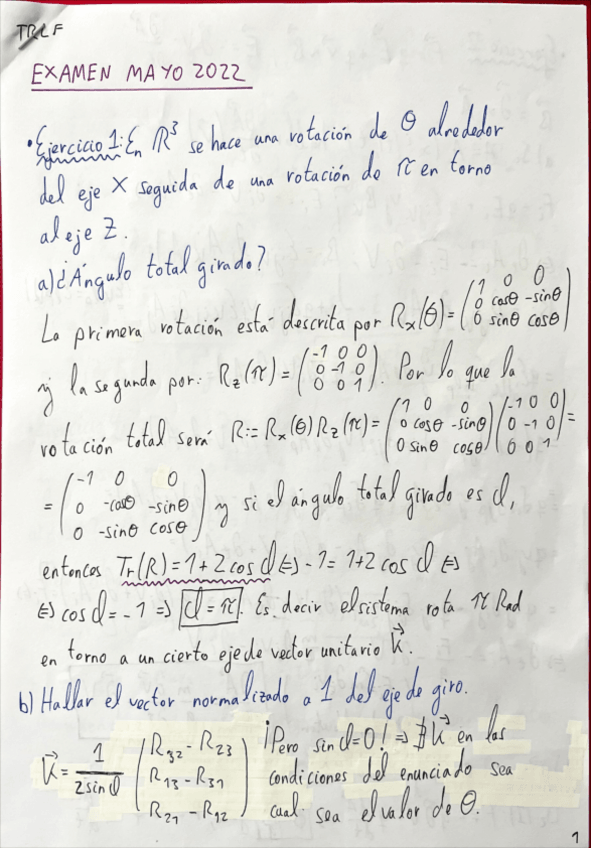 TRLF
EXAMEN MAYO 2022
• Ejercicio 1: En ℝ³ se hace una rotación de θ alrededor
del eje X seguida de una rotación de π en torno
al eje Z.
a) ¿Ángulo total girado?
La primera rotación está descrita por Rx(θ) = (1 0 0; 0 cosθ -sinθ; 0 sinθ cosθ)
y la segunda por: Rz(π) = (-1 0 0; 0 -1 0; 0 0 1). Por lo que la
rotación total será R := Rx(θ) Rz(π) = (1 0 0; 0 cosθ -sinθ; 0 sinθ cosθ) (-1 0 0; 0 -1 0; 0 0 1) =
= (-1 0 0; 0 -cosθ -sinθ; 0 -sinθ cosθ) y si el ángulo total girado es d,
entonces Tr(R) = 1 + 2 cos d ⇔ -1 = 1 + 2 cos d ⇔
⇔ cos d = -1 ⇒ d = π. Es decir el sistema rota π Rad
en torno a un cierto eje de vector unitario k⃗.
b) Hallar el vector normalizado a 1 del eje de giro.
k⃗ = 1/(2 sin d) (R32 - R23; R13 - R31; R21 - R12) ¡Pero sin d = 0! ⇒ ∄ k⃗ en las
condiciones del enunciado sea
cual sea el valor de θ.
1